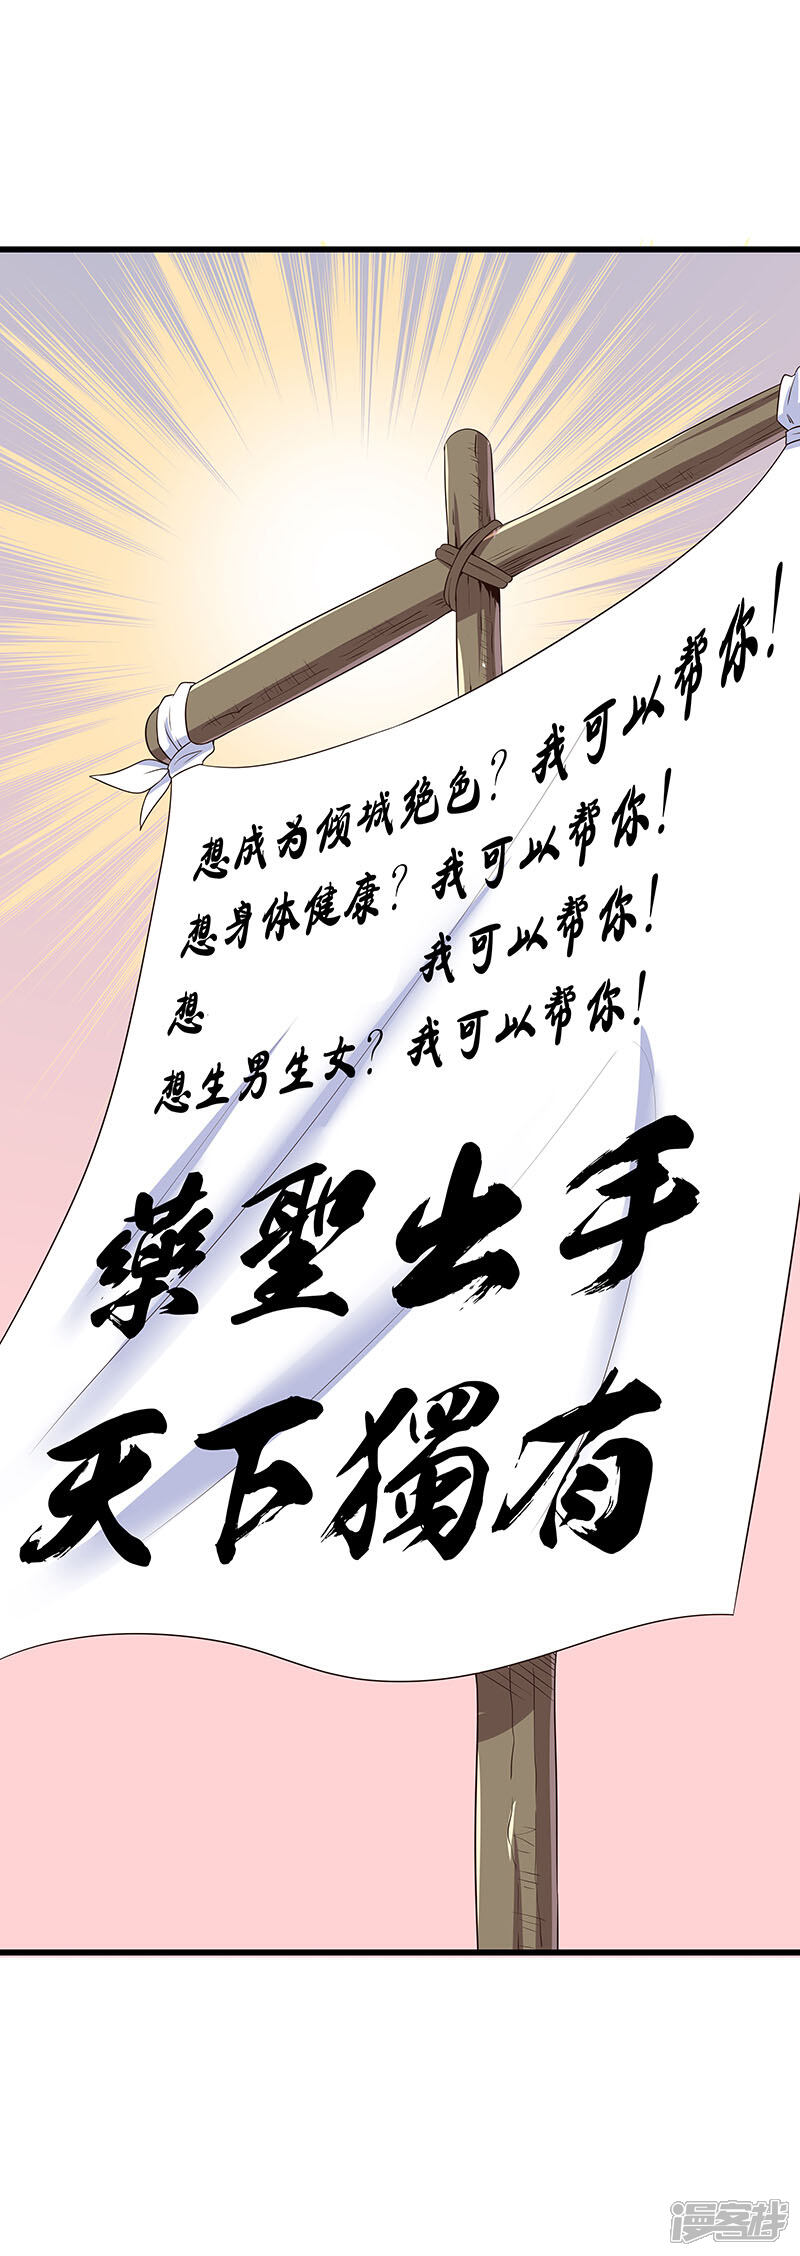 想成为倾城绝色？我可以帮你！
想身体健康？我可以帮你！
想 我可以帮你！
想生男生女？我可以帮你！
藥聖出手
天下獨有
漫客栈